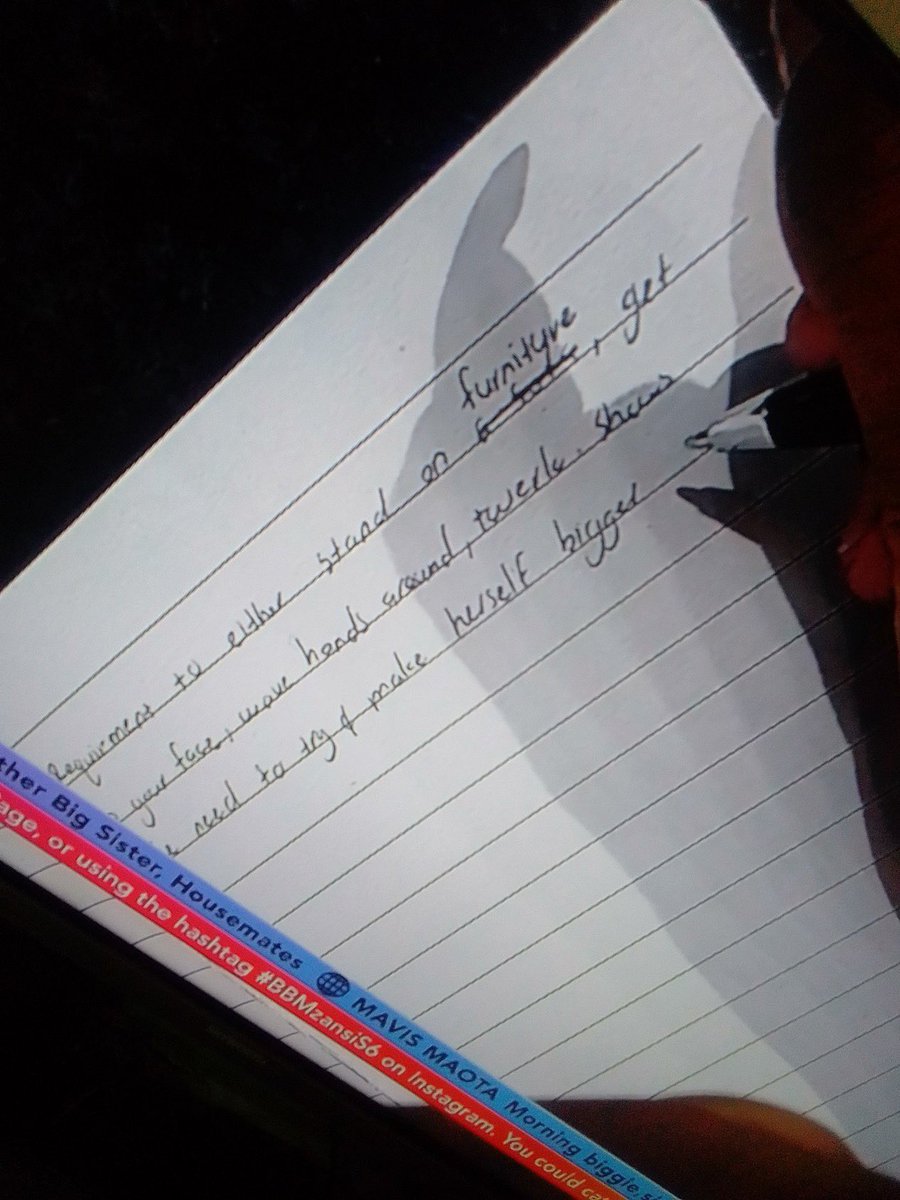 furniture
Requirment to either stand on a sofa, get
your face, move hands around, twerk. Shows
need to try & make herself bigger
ther Big Sister, Housemates MAVIS MAOTA Morning biggie,
age, or using the hashtag #BBMzansiS6 on Instagram. You could